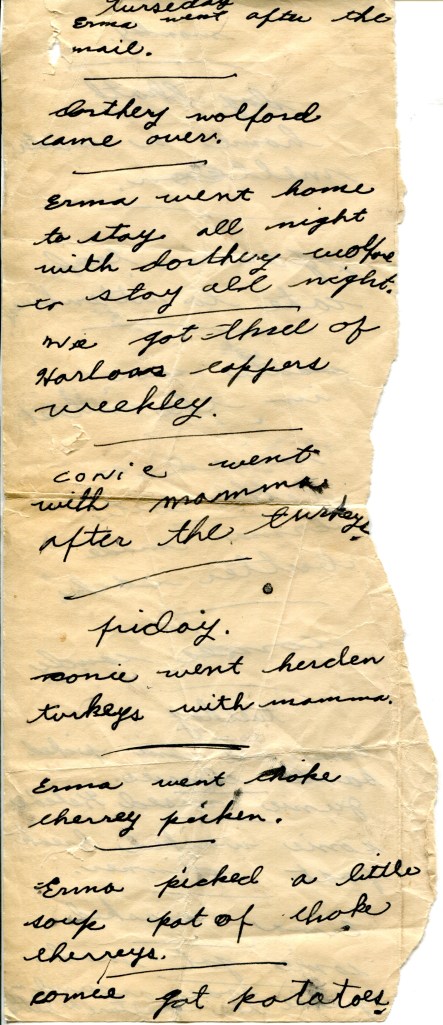 turseday
Erma went after the
mail.
dorthey wolford
came over.
Erma went home
to stay all night
with dorthey wolfore
to stay all night.
we got three of
Harloas cappers
weekley.
conie went
with mamma
after the turkeys.
friday.
conie went herden
turkeys with mamma.
Erma went choke
cherrey picken.
Erma picked a little
soup pot of choke
cherreys.
conie got potatoes